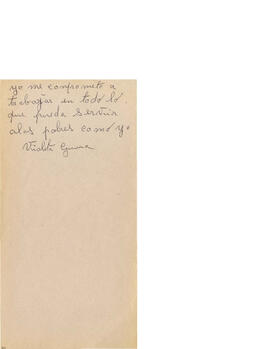 yo me comprometo a
trabajar en todo lo
que pueda servir
a los pobres como yo